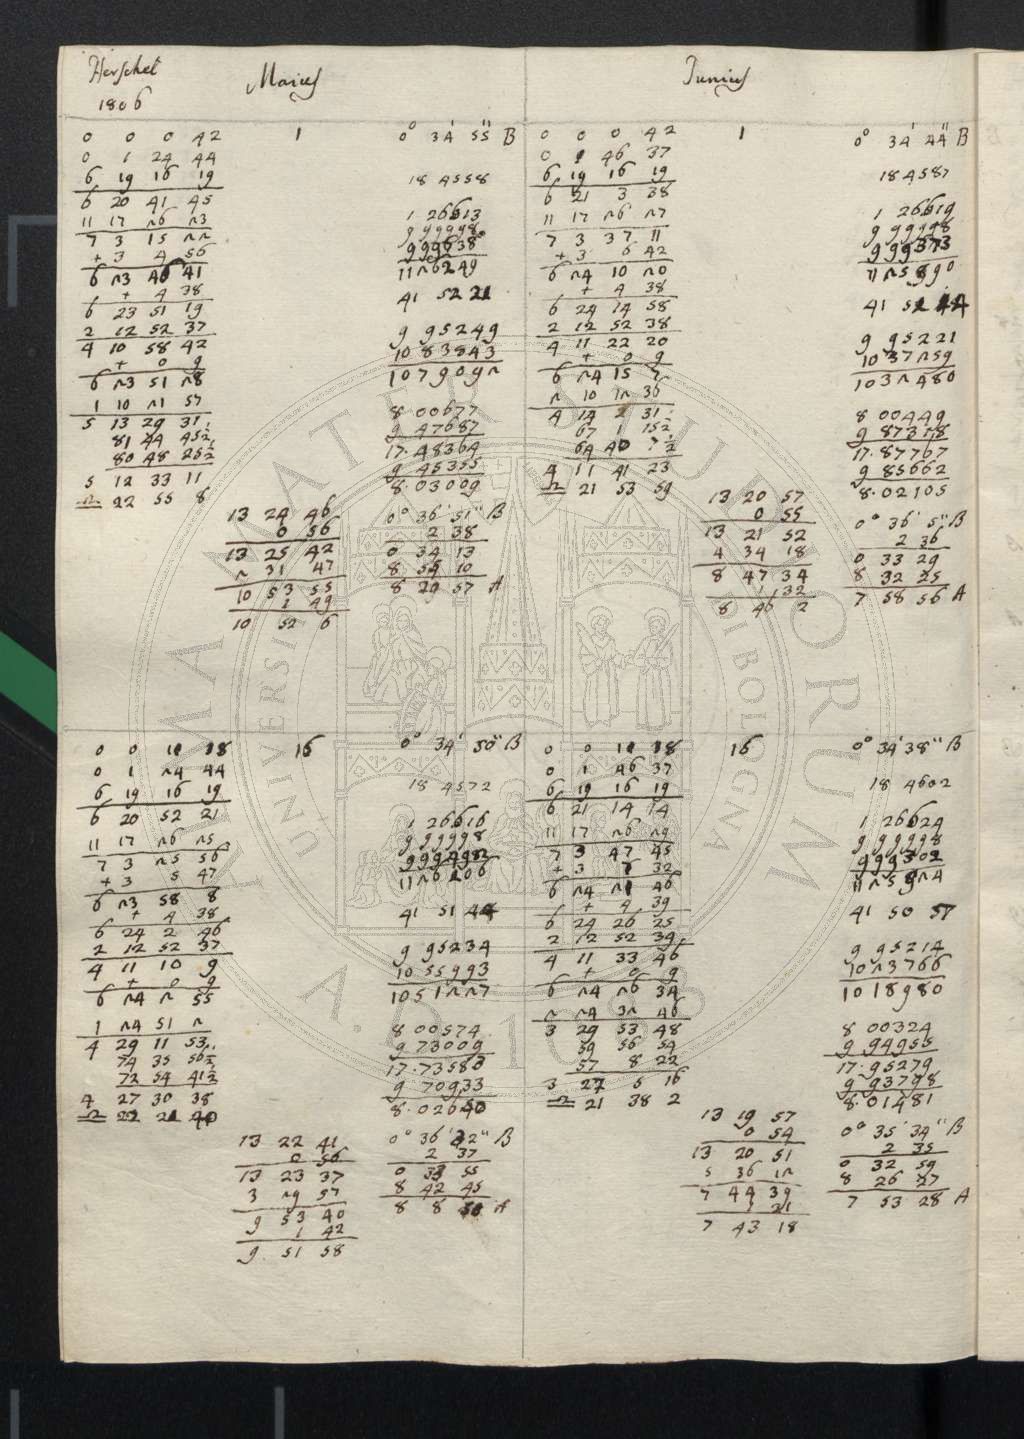 Herschel
1806
Maius
Junius
0 0 0 42
1
0° 34' 55" B
0 1 24 44
6 19 16 19
18 4558
6 20 41 45
11 17 26 23
1 26613
7 3 15 22
9 99998
+ 3 4 56
9 99638
6 23 46 41
11 26249
+ 4 38
6 23 51 19
41 52 21
2 12 52 37
4 10 58 42
9 95249
+ 0 9
10 83843
6 23 51 28
10 79092
1 10 21 57
5 13 29 31
8 00677
81 44 45½
9 47687
80 48 25½
17.48364
5 12 33 11
9 45355
♎ 22 55 8
8.03009
13 24 46
0° 36' 51" B
0 56
2 38
13 25 42
0 34 13
2 31 47
8 55 10
10 53 55
8 29 57 A
1 49
10 52 6
0 0 0 42
1
0° 34' 44" B
0 1 46 37
6 19 16 19
18 4587
6 21 3 38
11 17 26 27
1 26619
7 3 37 11
9 99998
+ 3 6 42
9 99373
6 24 10 20
11 25990
+ 4 38
6 24 14 58
41 52 44
2 12 52 38
4 11 22 20
9 95221
+ 0 9
10 37259
6 24 15 7
10 32480
2 10 12 36
4 14 2 31
8 00449
67 1 15½
9 87318
64 40 7½
17.87767
4 11 41 23
9 85662
♎ 21 53 59
8.02105
13 20 57
0° 36' 5" B
0 55
2 36
13 21 52
0 33 29
4 34 18
8 32 25
8 47 34
7 58 56 A
1 32
8 46 2
0 0 11 18
16
0° 34' 50" B
0 1 24 44
6 19 16 19
18 4572
6 20 52 21
11 17 26 25
1 26616
7 3 25 56
9 99998
+ 3 5 47
9 99492
6 23 58 8
11 26106
+ 4 38
6 24 2 46
41 51 44
2 12 52 37
4 11 10 9
9 95234
+ 0 9
10 55993
6 24 2 55
10 51227
1 24 51 2
4 29 11 53
8 00574
74 35 56½
9 73009
72 54 41½
17.73583
4 27 30 38
9 70933
♎ 22 21 40
8.02650
13 22 41
0° 36' 32" B
0 56
2 37
13 23 37
0 33 55
3 29 57
8 42 45
9 53 40
8 8 50 A
1 42
9 51 58
0 0 11 18
16
0° 34' 38" B
0 1 46 37
6 19 16 19
18 4602
6 21 14 14
11 17 26 29
1 26624
7 3 47 45
9 99998
+ 3 7 32
9 99302
6 24 21 46
11 25924
+ 4 39
6 24 26 25
41 50 57
2 12 52 39
4 11 33 46
9 95214
+ 0 9
10 23766
6 24 26 34
10 18980
2 24 32 46
3 29 53 48
8 00324
59 56 54
9 94955
57 8 22
17.95279
3 27 5 16
9 93798
♎ 21 38 2
8.01481
13 19 57
0° 35' 34" B
0 54
2 35
13 20 51
0 32 59
5 36 12
8 26 27
7 44 39
7 53 28 A
1 21
7 43 18
ALMA MATER STUDIORUM
UNIVERSITÀ DI BOLOGNA
A.D. 1088